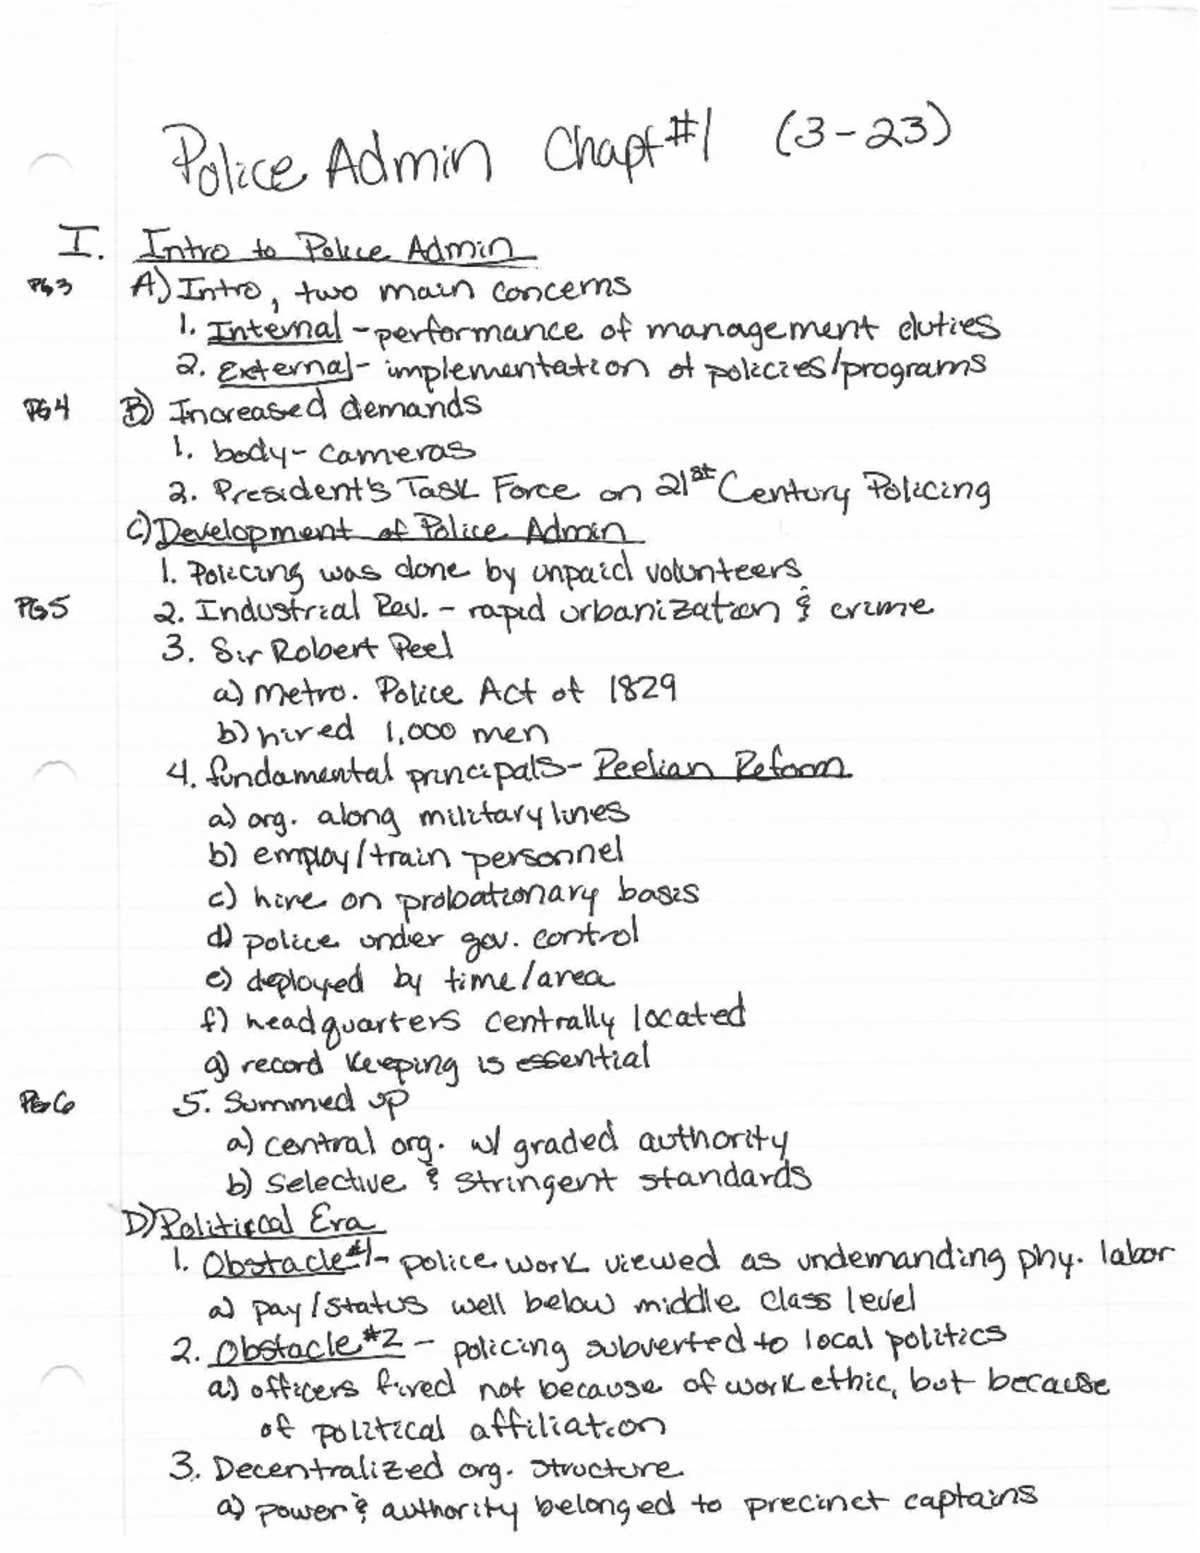 Police Admin Chapt #1 (3-23)
I. Intro to Police Admin
PG3 A) Intro, two main concerns
1. Internal - performance of management duties
2. External - implementation of policies/programs
PG4 B) Increased demands
1. body-cameras
2. President's Task Force on 21st Century Policing
C) Development of Police Admin
1. Policing was done by unpaid volunteers
PG5 2. Industrial Rev. - rapid urbanization & crime
3. Sir Robert Peel
a) Metro. Police Act of 1829
b) hired 1,000 men
4. fundamental principals - Peelian Reform
a) org. along military lines
b) employ/train personnel
c) hire on probationary basis
d) police under gov. control
e) deployed by time/area
f) headquarters centrally located
g) record keeping is essential
PG6 5. Summed up
a) central org. w/ graded authority
b) Selective & stringent standards
D) Political Era
1. Obstacle #1 - police work viewed as undemanding phy. labor
a) pay/status well below middle class level
2. Obstacle #2 - policing subverted to local politics
a) officers fired not because of work ethic, but because
of political affiliation
3. Decentralized org. structure
a) power & authority belonged to precinct captains